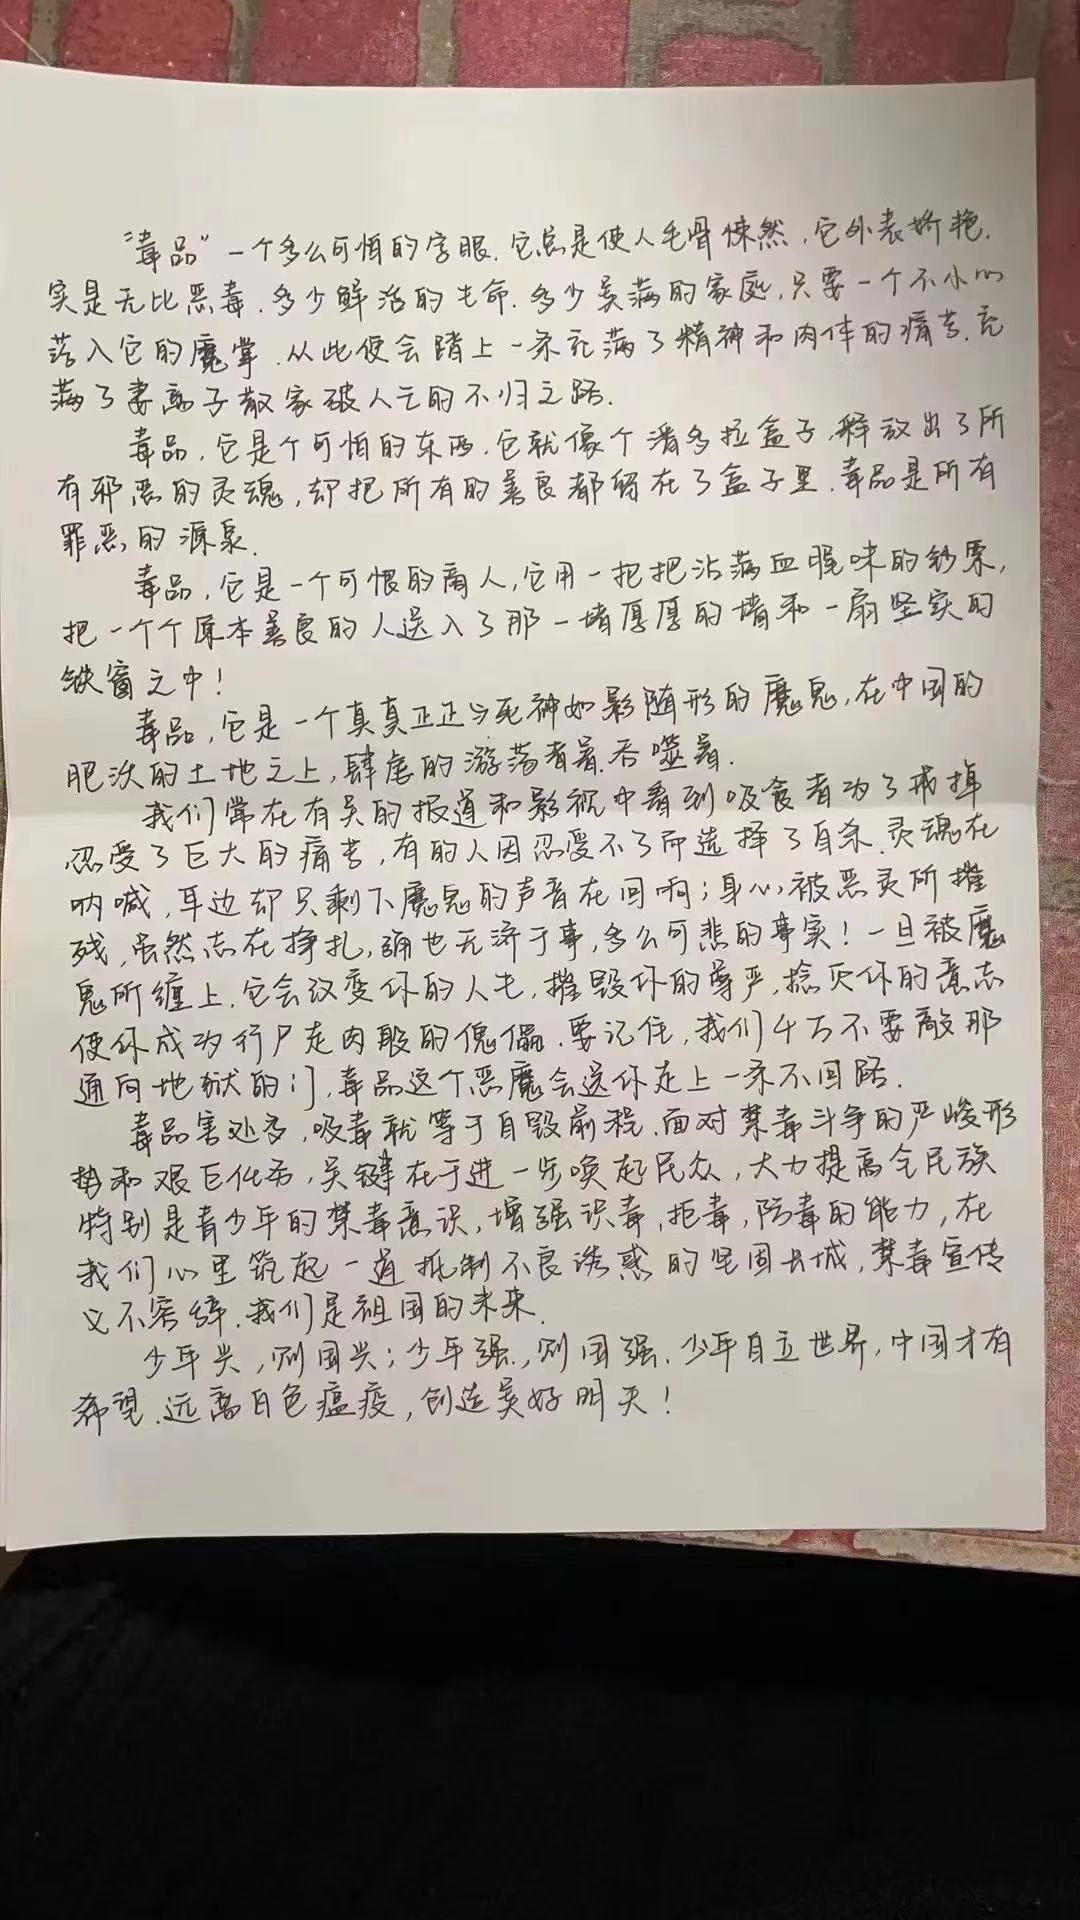 “毒品”一个多么可怕的字眼.它总是使人毛骨悚然,它外表娇艳.
实是无比恶毒.多少鲜活的生命.多少美满的家庭,只要一个不小心
落入它的魔掌.从此便会踏上一条充满了精神和肉体的痛苦.充
满了妻离子散家破人亡的不归之路.
毒品,它是个可怕的东西.它就像个潘多拉盒子.释放出了所
有邪恶的灵魂,却把所有的善良都留在了盒子里.毒品是所有
罪恶的源泉.
毒品,它是一个可恨的商人,它用一把把沾满血腥味的钞票,
把一个个原本善良的人送入了那一堵厚厚的墙和一扇坚实的
铁窗之中!
毒品,它是一个真真正正与死神如影随形的魔鬼,在中国的
肥沃的土地之上,肆虐的游荡着着.吞噬着.
我们常在有关的报道和影视中看到吸食者为了戒掉
忍受了巨大的痛苦,有的人因忍受不了而选择了自杀.灵魂在
呐喊,耳边却只剩下魔鬼的声音在回响;身心被恶灵所摧
残,虽然志在挣扎,确也无济于事,多么可悲的事实!一旦被魔
鬼所缠上.它会改变你的人生,摧毁你的尊严,捻灭你的意志
使你成为行尸走肉般的傀儡.要记住,我们千万不要敲那
通向地狱的门,毒品这个恶魔会送你走上一条不回路.
毒品害处多,吸毒就等于自毁前程.面对禁毒斗争的严峻形
势和艰巨任务,关键在于进一步唤起民众,大力提高全民族
特别是青少年的禁毒意识,增强识毒,拒毒,防毒的能力,在
我们心里筑起一道抵制不良诱惑的坚固长城,禁毒宣传
义不容辞.我们是祖国的未来.
少年兴,则国兴;少年强,则国强.少年自立世界,中国才有
希望.远离白色瘟疫,创造美好明天!